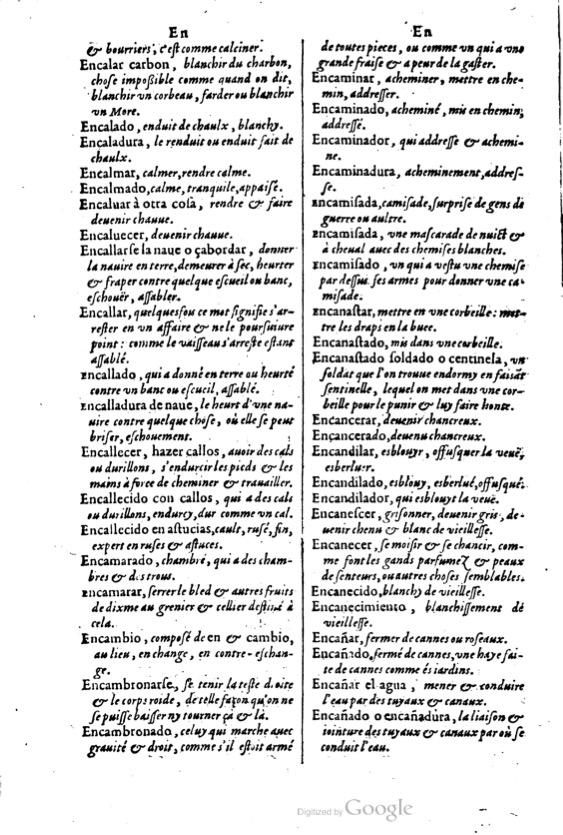 En
& bourriers, c'est comme calciner.
Encalar carbon, blanchir du charbon,
chose impoßible comme quand on dit,
blanchir vn corbeau, farder ou blanchir
vn More.
Encalado, enduit de chaulx, blanchy.
Encaladura, le renduit ou enduit fait de
chaulx.
Encalmar, calmer, rendre calme.
Encalmado, calme, tranquile, appaisé.
Encaluar à otra cosa, rendre & faire
deuenir chauue.
Encaluecer, deuenir chauue.
Encallarse la naue o çabordar, donner
la nauire en terre, demeurer à sec, heurter
& fraper contre quelque escueil ou banc,
eschouër, assabler.
Encallar, quelquesfou ce mot signifie s'ar-
rester en vn affaire & ne le poursuiure
point: comme le vaisseau s'arreste estant
assablé.
Encallado, qui a donné en terre ou heurté
contre vn banc ou escueil, assablé.
Encalladura de naue, le heurt d'vne na-
uire contre quelque chose, où elle se peut
briser, eschouement.
Encallecer, hazer callos, auoir des cals
ou durillons, s'endurcir les pieds & les
mains à force de cheminer & trauailler.
Encallecido con callos, qui a des cals
ou durillons, endurcy, dur comme vn cal.
Encallecido en astucias, cault, rusé, fin,
expert en ruses & astuces.
Encamarado, chambré, qui a des cham-
bres & des trous.
Encamarar, serrer le bled & autres fruits
de dixme au grenier & cellier destiné à
cela.
Encambio, composé de en & cambio,
au lieu, en change, en contre-eschan-
ge.
Encambronarse, se tenir la teste droite
& le corps roide, de telle façon qu'on ne
se puisse baisser ny tourner çà & là.
Encambronado, celuy qui marche auec
grauité & droit, comme s'il estoit armé
En
de toutes pieces, ou comme vn qui a vne
grande fraise & a peur de la gaster.
Encaminar, acheminer, mettre en che-
min, addresser.
Encaminado, acheminé, mis en chemin,
addressé.
Encaminador, qui addresse & achemi-
ne.
Encaminadura, acheminement, addres-
se.
Encamisada, camisade, surprise de gens de
guerre ou aultre.
Encamisada, vne mascarade de nuict &
à cheual auec des chemises blanches.
Encamisado, vn qui a vestu vne chemise
par dessus ses armes pour donner vne ca-
misade.
Encanastar, mettre en vne corbeille: met-
tre les draps en la buee.
Encanastado, mis dans vne corbeille.
Encanastado soldado o centinela, vn
soldat que l'on trouue endormy en faisāt
sentinelle, lequel on met dans vne cor-
beille pour le punir & luy faire honte.
Encancerar, deuenir chancreux.
Encancerado, deuenu chancreux.
Encandilar, esblouyr, offusquer la veuë,
esberluer.
Encandilado, esblouy, esberlué, offusqué.
Encandilador, qui esblouyt la veuë.
Encanescer, grisonner, deuenir gris, de-
uenir chenu & blanc de vieillesse.
Encanecer, se moisir & se chancir, com-
me font les gands parfumez & peaux
de senteurs, ou autres choses semblables.
Encanecido, blanchy de vieillesse.
Encanecimiento, blanchissement de
vieillesse.
Encañar, fermer de cannes ou roseaux.
Encañado, fermé de cannes, vne haye fai-
te de cannes comme és iardins.
Encañar el agua, mener & conduire
l'eau par des tuyaux & canaux.
Encañado o encañadura, la liaison &
iointure des tuyaux & canaux par où se
conduit l'eau.
Digitized by Google